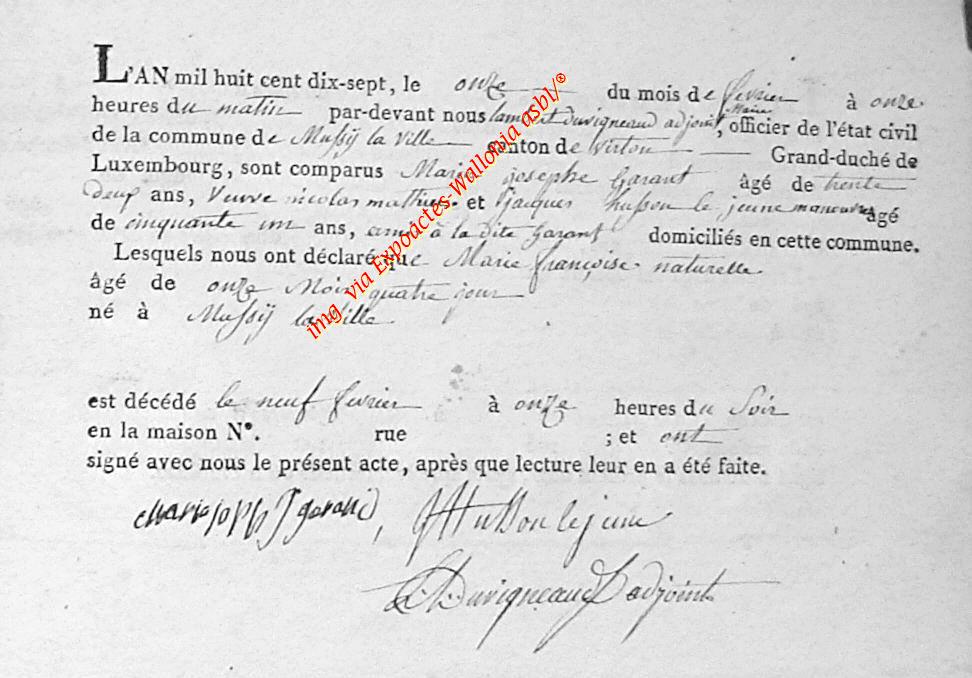 L'AN mil huit cent dix-sept, le onze du mois de fevrier à onze
heures du matin par-devant nous lambert duvigneaud adjoint Maire, officier de l'état civil
de la commune de Mussÿ la Ville canton de Virton Grand-duché de
Luxembourg, sont comparus Marie josephe Garant âgé de trente
deux ans, Veuve nicolas mathieu et jacques husson le jeune manouvrier âgé
de cinquante un ans, ami à la dite Garant domiciliés en cette commune.
Lesquels nous ont déclaré que Marie françoise naturelle
âgé de onze Mois quatre jour
né à Mussÿ la Ville
est décédé le neuf fevrier à onze heures du Soir
en la maison N°. rue ; et ont
signé avec nous le présent acte, après que lecture leur en a été faite.
garand, Husson le jeune
Duvigneaud adjoint
img via Expoactes-Wallonia asbl/®